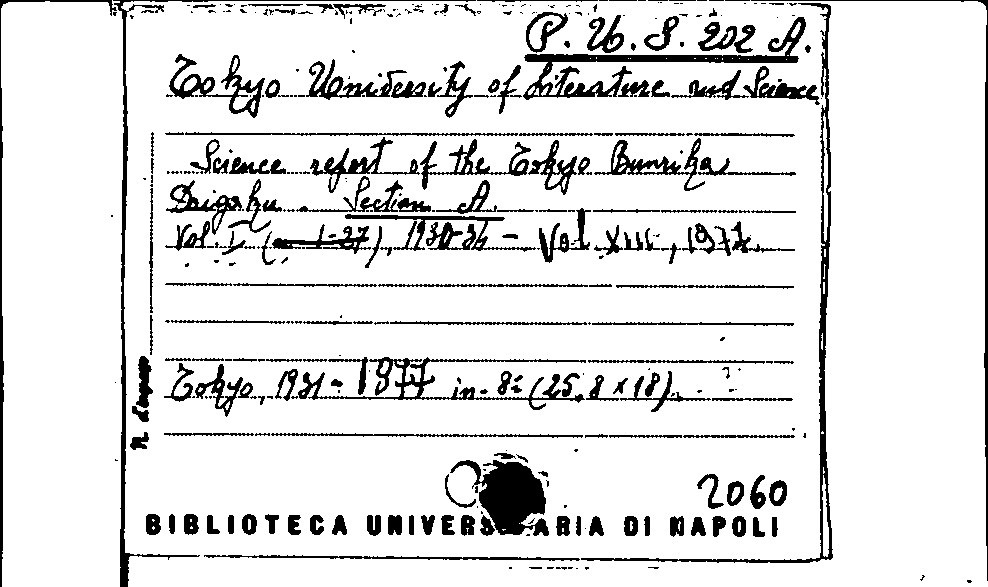 P. Us. S. 202 A.
Tokyo University of Literature and Science
Science report of the Tokyo Bunrika
Daigaku. Section A.
Vol. I (n 1-27), 1930-34 - Vol XIII, 1977.
Tokyo, 1931 - 1977 in-8º (25,8 x 18).
N. d'ingresso
2060
BIBLIOTECA UNIVERS ARIA DI NAPOLI